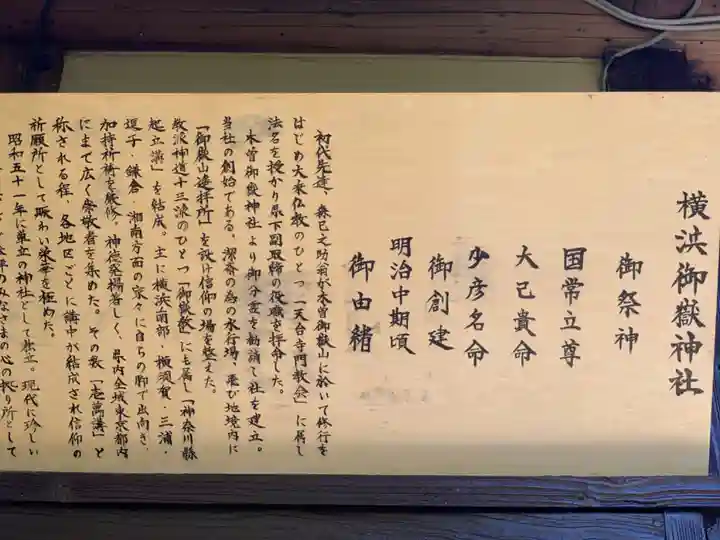 横浜御嶽神社
御祭神
国常立尊
大己貴命
少彦名命
御創建
明治中期頃
御由緒
初代先達、森己之助翁が木曽御嶽山に於いて修行を
はじめ大乗仏教のひとつ「天台寺門教会」に属し
法名を授かり県下副取締の役職を拝命した。
木曽御嶽神社より御分霊を勧請し社を建立。
当社の創始である。潔斎の為の水行場、及び地境内に
「御嶽山遙拝所」を設け信仰の場を整えた。
教派神道十三派のひとつ「御嶽教」にも属し「神奈川縣
起立講」を結成。主に横浜南部・横須賀・三浦・
逗子・鎌倉・湘南方面の家々に自らの脚で出向き、
加持祈祷を厳修。神徳発揚著しく、県内全域東京都内
にまで広く崇敬者を集めた。その数「壱萬講」と
称される程、各地区ごとに講中が結成され信仰の
祈願所として賑わい栄華を極めた。
昭和五十一年に単立の神社として独立。現代に珍しい
みなさまの心の拠り所として